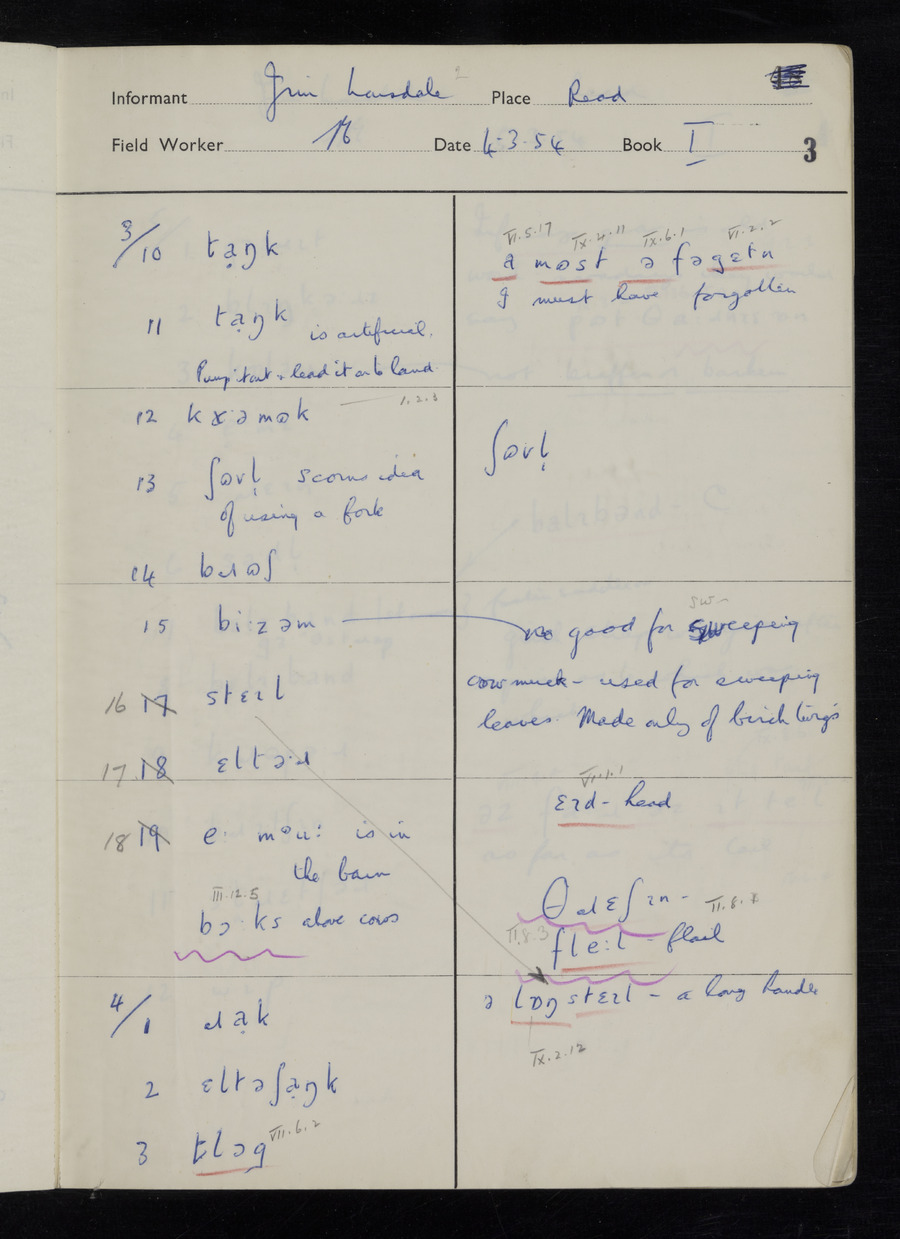 Informant Jim Lonsdale Place Read
Field Worker Date 4.3.54 Book I 3
3/10 ta̤ŋk
11 ta̤ŋk is artificial.
Pump it out & lead it on to land
12 kɤːəmək 1.2.3
13 ʃɒvl̩ scorns idea
of using a fork
14 bɹɷʃ
15 biːzəm
16 17 stɛɪl
17 18 ɛltəɹ
18 19 is in
the barn
III.12.5
bɔ·ks above cows
4/1 ɹa̤k
2 ɛltəʃa̤ŋk
3 tlɔg VII.6.2
VI.5.17 IX.4.11 IX.6.1 VI.2.2
a mɷst ə fəgɛtn
I must have forgotten
ʃɒvl̩
sw-
no good for sweeping
cow muck - used for sweeping
leaves. Made only of birch twigs
VI.1.1
ɛɪd - head
θɹɛʃɪn -
II.8.3 fleːl - flail
ə lɒŋ stɛɪl - a long handle
IX.2.12